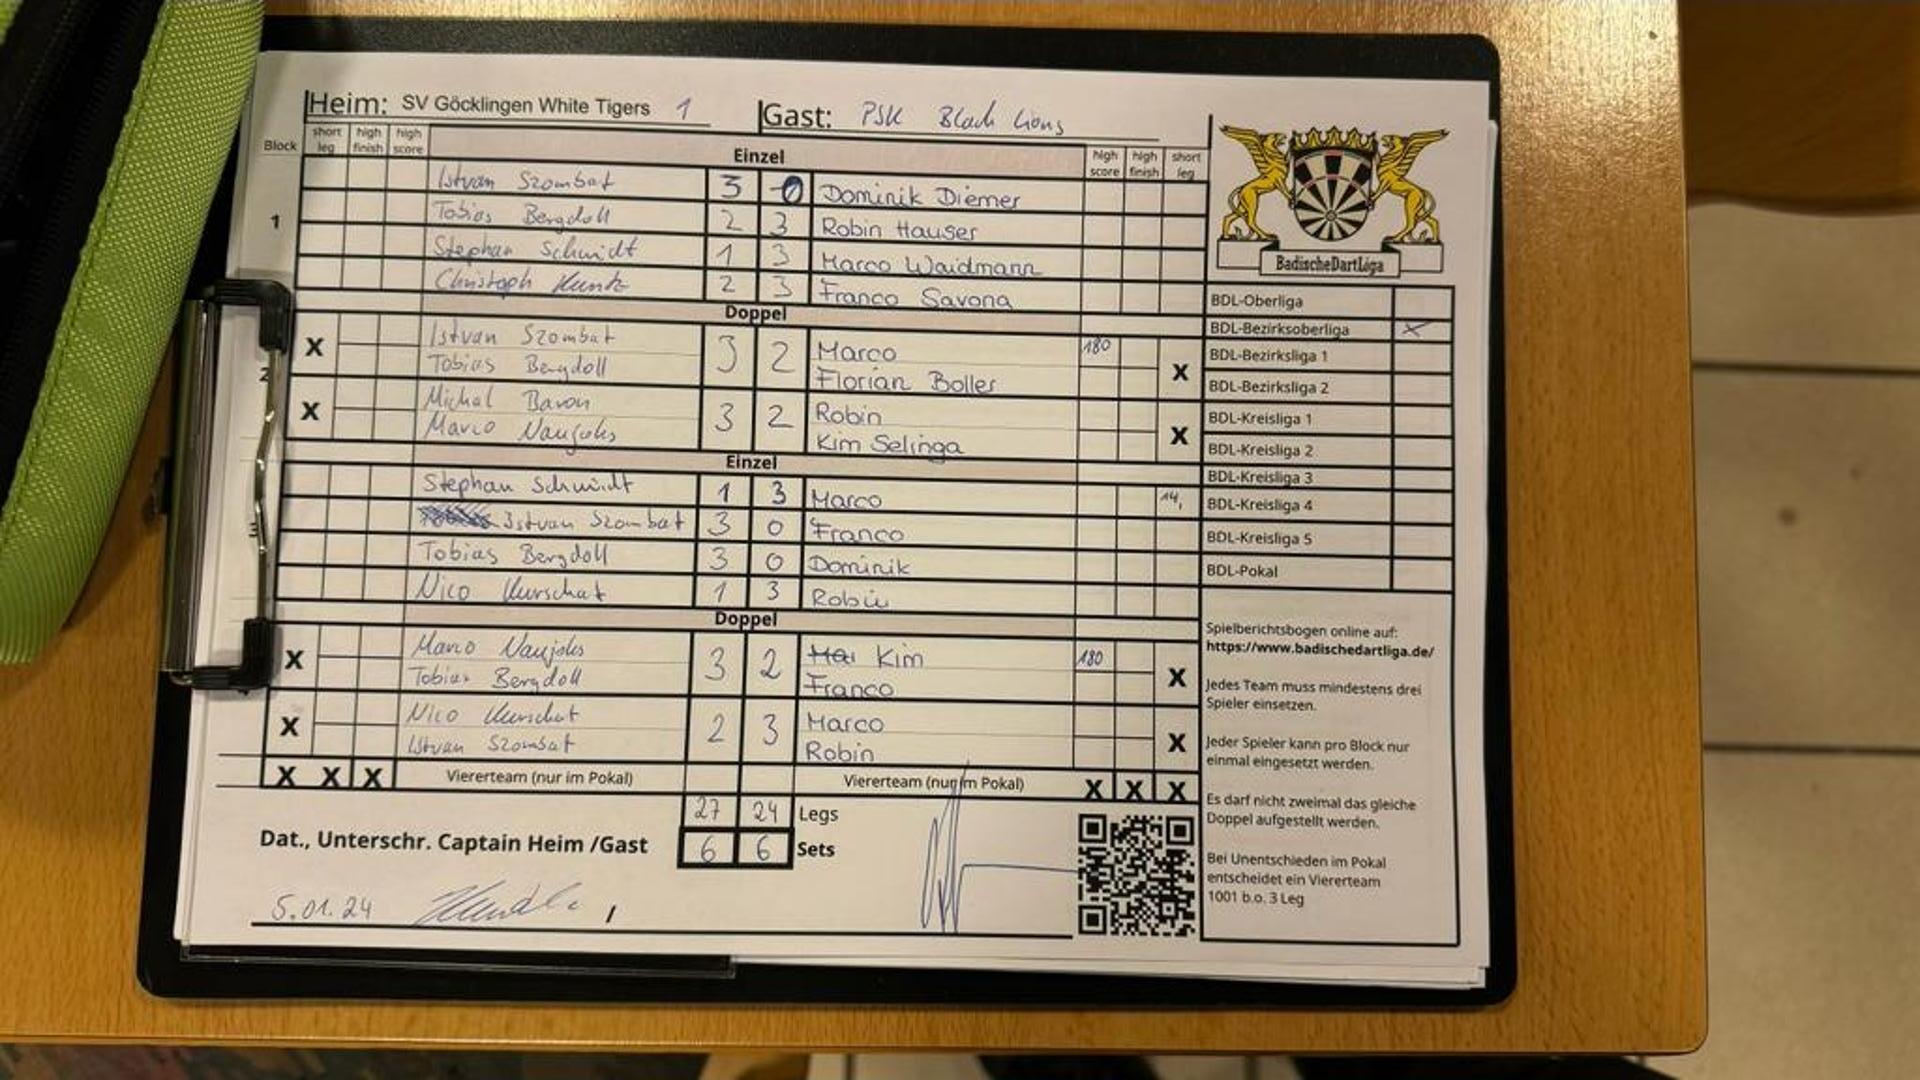 Heim: SV Göcklingen White Tigers 1 Gast: PSK Black Lions
Block short leg high finish high score Einzel high score high finish short leg
Istvan Szombat 3 0 Dominik Diemer
1 Tobias Bergdoll 2 3 Robin Hauser
Stephan Schmidt 1 3 Marco Waidmann
Christoph Kuntz 2 3 Franco Savona
Doppel
X Istvan Szombat 3 2 Marco 180 X
Tobias Bergdoll Florian Boller
2
X Michal Baron 3 2 Robin X
Marco Naujoks Kim Selinga
Einzel
Stephan Schmidt 1 3 Marco 14,
Istvan Szombat 3 0 Franco
Tobias Bergdoll 3 0 Dominik
Nico Kurschat 1 3 Robin
Doppel
X Marco Naujoks 3 2 Kim 180 X
Tobias Bergdoll Franco
X Nico Kurschat 2 3 Marco X
Istvan Szombat Robin
X X X Viererteam (nur im Pokal) Viererteam (nur im Pokal) X X X
27 24 Legs
Dat., Unterschr. Captain Heim /Gast 6 6 Sets
5.01.24 /
BadischeDartLiga
BDL-Oberliga
BDL-Bezirksoberliga X
BDL-Bezirksliga 1
BDL-Bezirksliga 2
BDL-Kreisliga 1
BDL-Kreisliga 2
BDL-Kreisliga 3
BDL-Kreisliga 4
BDL-Kreisliga 5
BDL-Pokal
Spielberichtsbogen online auf:
https://www.badischedartliga.de/
Jedes Team muss mindestens drei
Spieler einsetzen.
Jeder Spieler kann pro Block nur
einmal eingesetzt werden.
Es darf nicht zweimal das gleiche
Doppel aufgestellt werden.
Bei Unentschieden im Pokal
entscheidet ein Viererteam
1001 b.o. 3 Leg